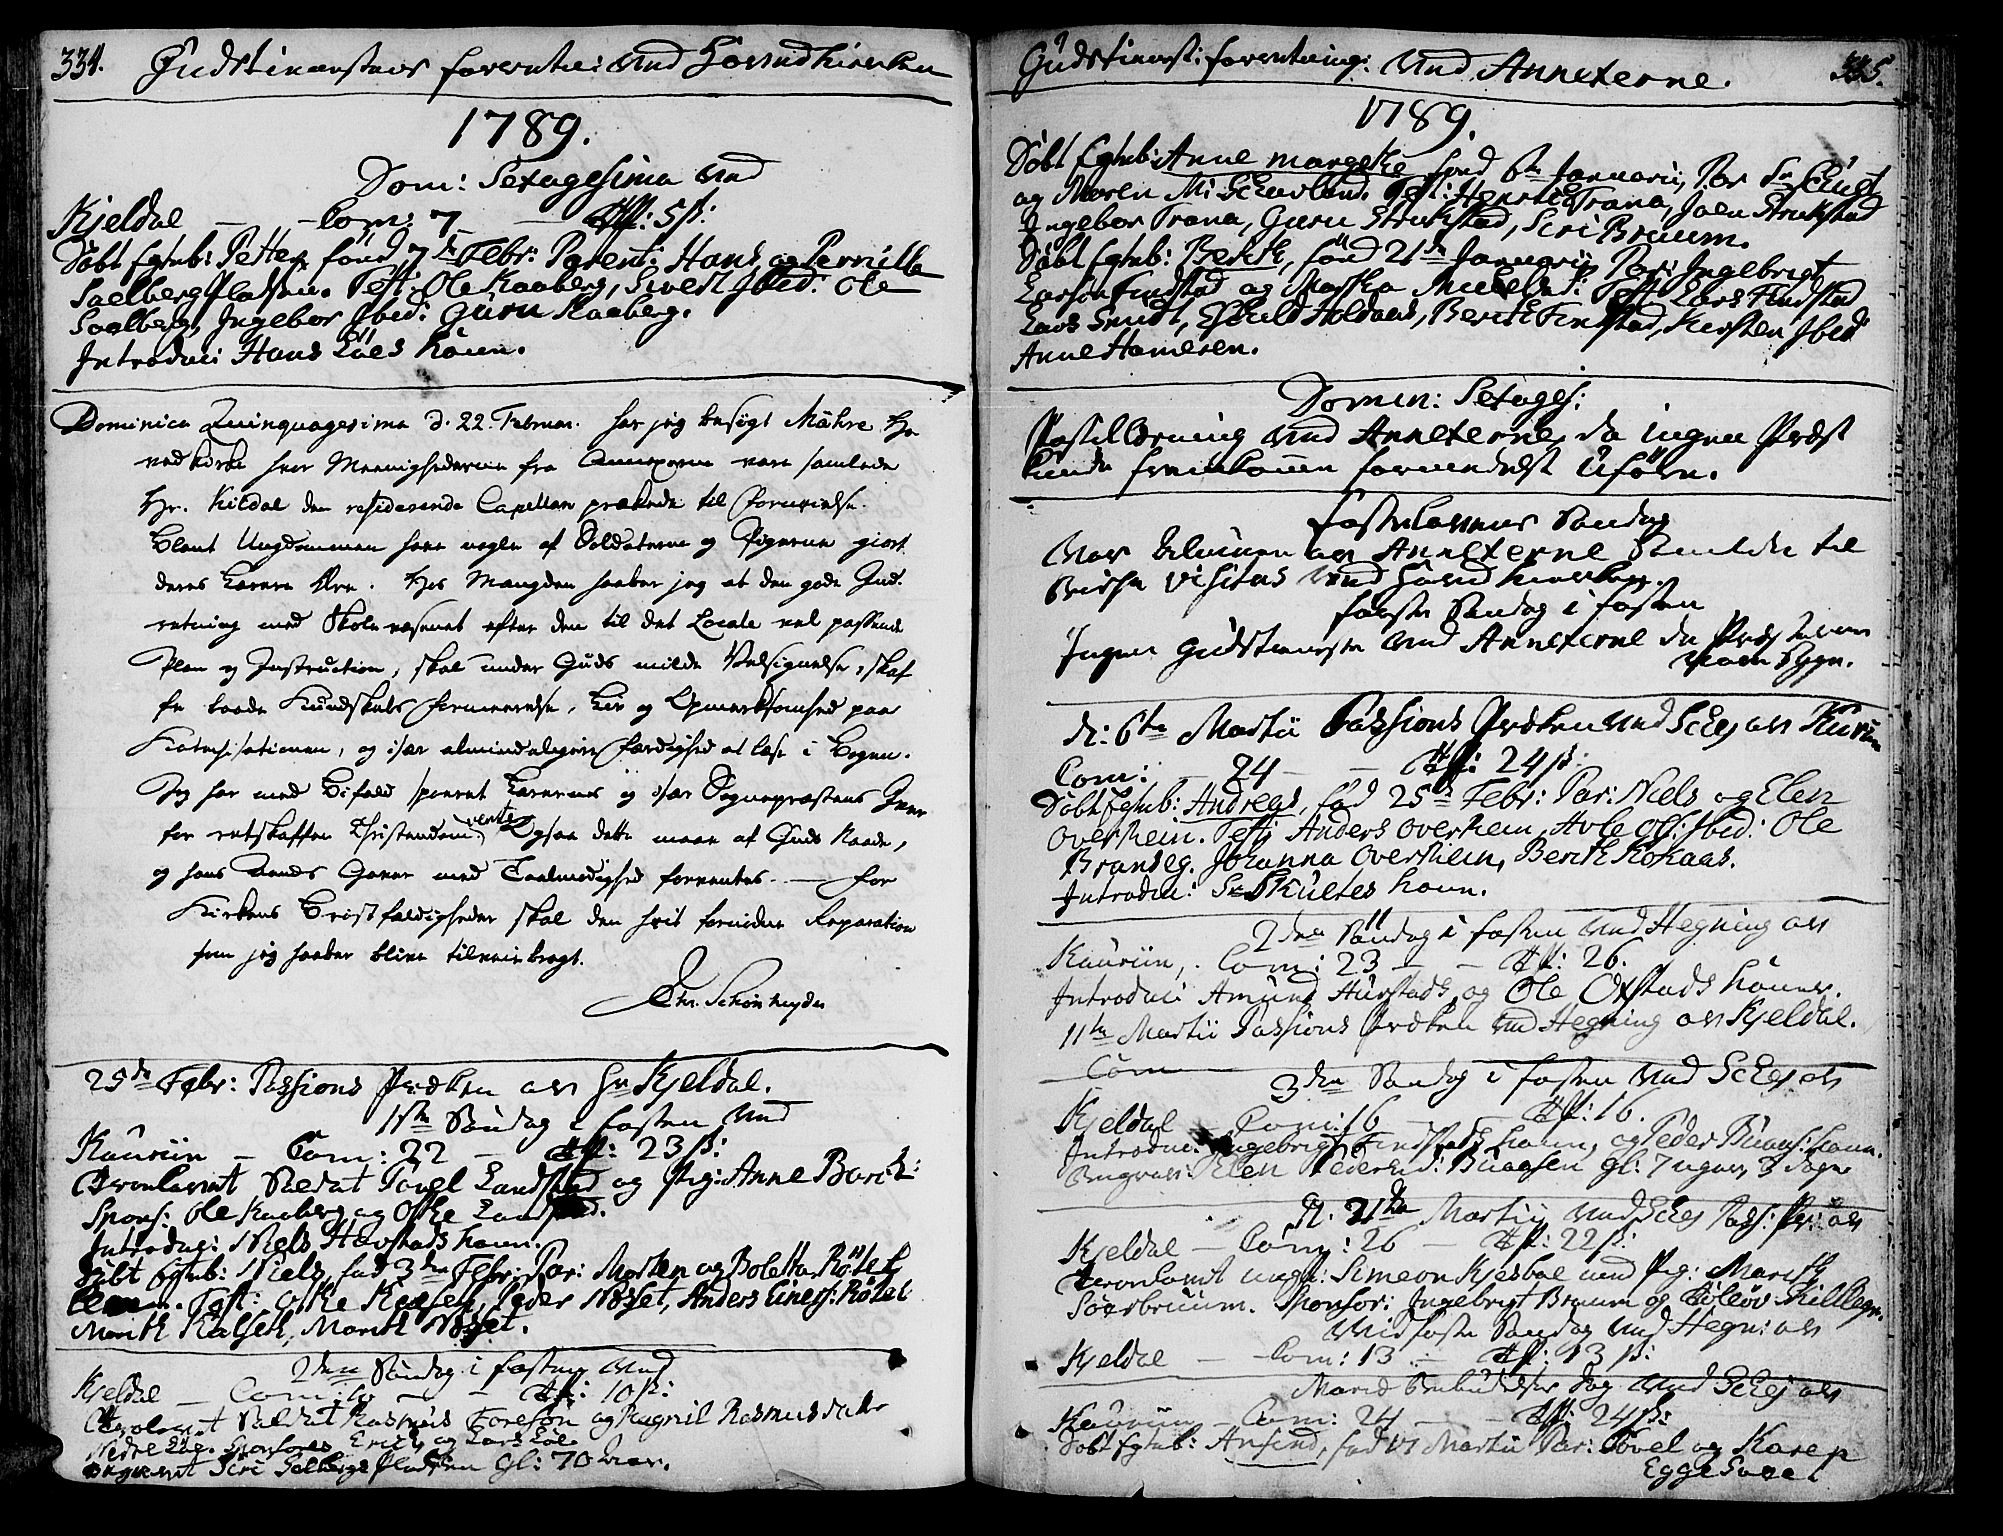 334. Gudstienestens forretn: ved Hovedkirken
1789.
Dom: Sexagesima ved
Kjeldal — Com: 7 — Off: 5 ß:
Døbt Egtub: Petter, fönd 7de Febr: Parent: Hans og Pernille
Saelberg Pladsen. Test: Ole Kaaberg, Sivert Jbid: Ole
Saelberg, Ingebor Jbid: Guru Kaaberg.
Introduc: Hans Löes Kone.
Dominica Quinquagesima d. 22. Februar. har jeg besøgt Mæhre Ho-
vedkirke hvor Meenighederne fra Annexerne vare samlede
Hr. Kildal den residerende Capellan prækede til Fornøielse.
Blant Ungdommen have nogle af Soldaterne og Pigerne giort
deres Lærere Ære. Hos Mængden haaber jeg at den gode Ind-
retning med Skolevæsenet efter den til det Locale vel passende
Plan og Instruction, skal under Guds milde Velsignelse, skaf
fe baade Kundskabs Formeerelse, Liv og Opmærksomhed paa
Katechisationen, og især almindeligere Færdighed at læse i Bogen.
Jeg har med Bifald sporet Lærernes og især Sognepræstens Iver
for retskaffen Christendom, Ogsaa dette maae af Guds Naade,
vente
og hans Aands Gaver med Taalmodighed forventes. — For
Kirkens Brøstfældigheder skal den heit fornødne Reparation
som jeg haaber blive tilveiebragt.
Chr. Schønheyder
25de Febr: Passions Præken av Hr Kjeldal.
1ste Søndag i Fasten ved
Kaurin — Com: 22 — Off: 23 ß:
Copuleret Soldat Povel Landstad og Pig: Anne Borit:
Spons: Ole Kaaberg og Ofke Landstad.
Introduc: Niels Havstads Kone.
Døbt Egtub: Niels, fød 3de Febr: Par: Morten og Boletta Röset
Test: Peder Nosset, Anders Röset
Marith Kalseth, Marith Nosset.
2den Søndag i Fasten ved
Kjeldal — Com: 10 — Off: 10 ß:
Copuleret Soldat Rasmus Toresøn og Ragnil Rasmusdatr
Nedre Löe. Sponsores Erich og Lars Löe.
Begravet Siri Selberg Pladsen gl: 70 Aar.
Gudstienest: forretning: ved Annexerne. 335.
1789.
Døbt Egtub: Anne Margrethe, fönd 6te Januarii, Par Sr
og Maren M: Schevland. Test: Henrich Trana, Joen Strukstad
Ingebor Trana, Guru Strukstad, Siri Braum.
Døbt Egtub: Berith, fönd 21de Januarii Par: Ingebrigt
Larsen Findstad og Martha Test: Lars Findstad
Lars Smidt, Eskild Aldaas, Berith Findstad, Kirsten Jbid
Anne Hamersen.
Domin: Sexages:
Postillæsning ved Annexerne, da ingen Præst
kunde fremkomme formedelst Uføre.
Fastelavens Søndag
Var Almuen av Annexerne samlede til
Bispe Visitas ved Hovedkirken.
Første Søndag i Fasten
Ingen Gudstieneste ved Annexerne da Præsterne
vare syge.
d: 6te Martii Passions Præken ved Schej av Kaurin
Com: 24 — Off: 24 ß.
Døbt Egtub: Andreas, fød 25de Febr: Par: Niels og Elen
Overhein. Test: Anders Overhein, Avle Ols: Jbid: Ole
Branseg, Johanna Overhein, Berith Kokaas.
Introduc: Sr Skultes Kone.
2den Søndag i Fasten ved Hegning av
Kaurin, Com: 23 — Off: 26.
Introduc: Amund Hurstads og Ole Oxstads Koner.
11te Martii Passions Præken ved Hegning av Kjeldal.
Com
3den Søndag i Fasten ved Schej av
Kjeldal — Com: 16 — Off: 16.
Introduc: Ingebrigt Findstads Kone, og Peder Buaas: Kone.
Begravet: Elen Pedersd: Buaasen gl: 7 uger, 3 Dage
d: 21de Martii ved Schej Pass: Pr: av
Kjeldal — Com: 26 — Off: 22 ß:
Copuleret ungk: Simeon Kjesboe med Pig: Marith
Søerbruum. Sponsor: Ingebrigt Braum og
Midfaste Søndag ved Hegn: av
Kjeldal — Com: 13 — Off: 13 ß:
Mariæ Bebudelses Dag ved Schej av
Kaurin — Com: 24 — Off: 24 ß:
Døbt Egtub: Arsend, fød Martii Par: Povel og Karen
Egge Svee